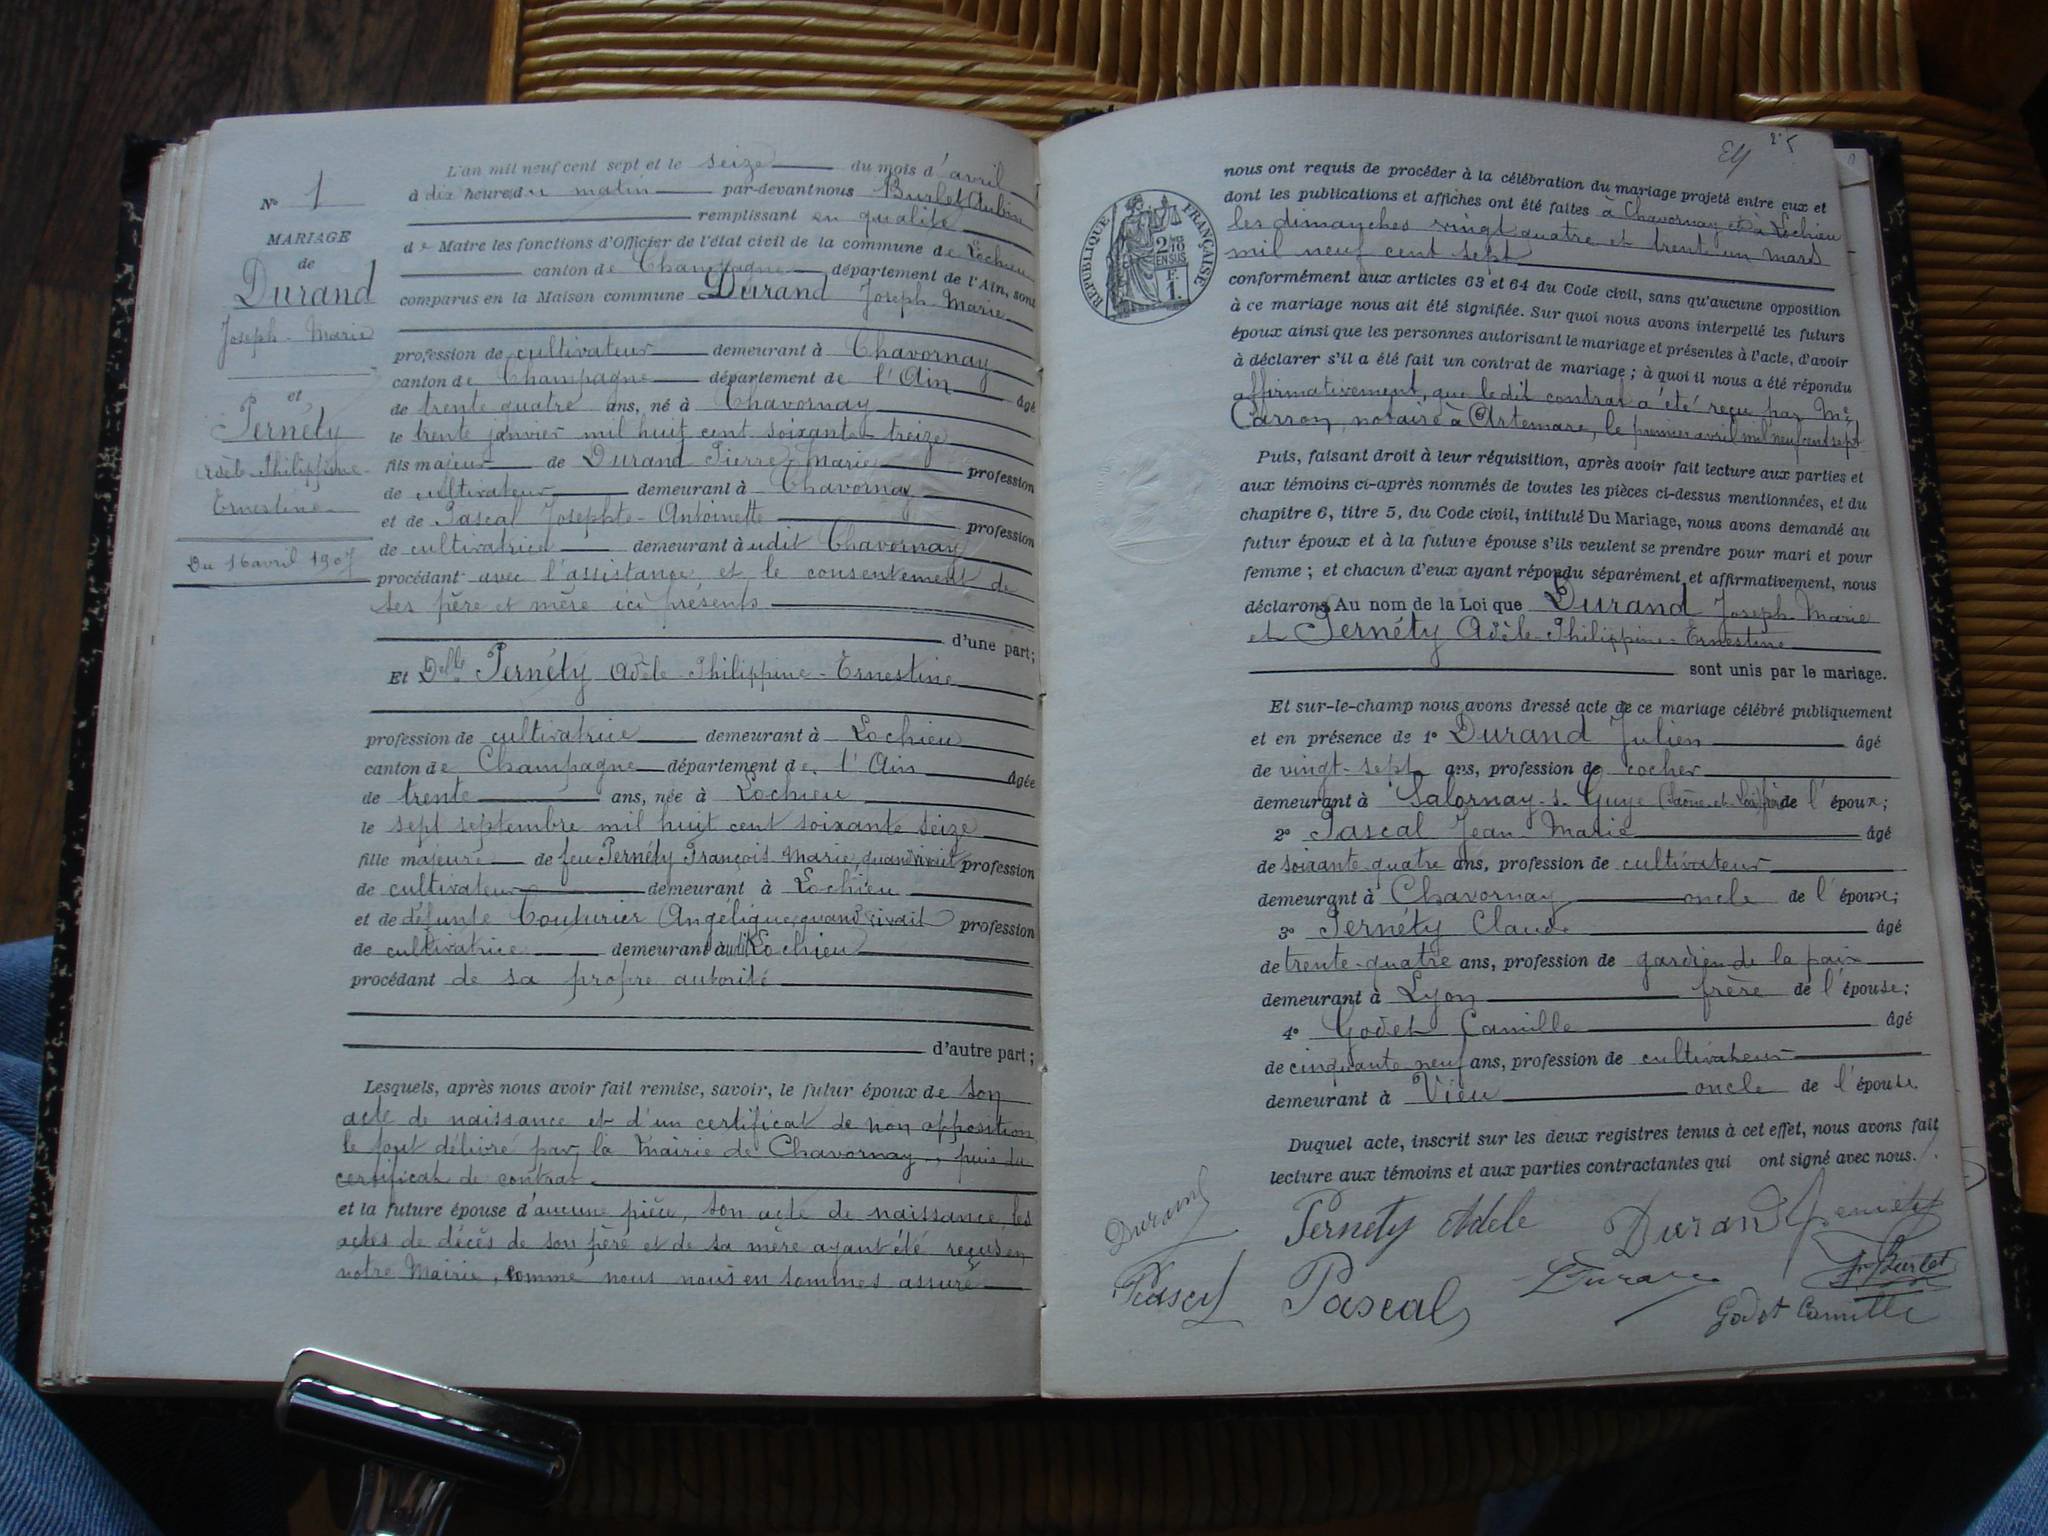 L'an mil neuf cent sept et le seize du mois d'avril
à dix heures du matin par-devant nous Burlet Aubin
remplissant en qualité
de Maire les fonctions d'Officier de l'état civil de la commune de Lochieu
canton de Champagne département de l'Ain, sont
comparus en la Maison commune Durand Joseph-Marie
profession de cultivateur demeurant à Chavornay
canton de Champagne département de l'Ain âgé
de trente quatre ans, né à Chavornay
le trente janvier mil huit cent soixante treize
fils majeur de Durand Pierre-Marie profession
de cultivateur demeurant à Chavornay
et de Pascal Josephte-Antoinette profession
de cultivatrice demeurant à udit Chavornay
procédant avec l'assistance et le consentement de
ses père et mère ici présents
d'une part;
Et Delle Pernéty Adèle-Philippine-Ernestine
profession de cultivatrice demeurant à Lochieu
canton de Champagne département de l'Ain âgée
de trente ans, née à Lochieu
le sept septembre mil huit cent soixante seize
fille majeure de feu Pernéty François Marie, quand vivait profession
de cultivateur demeurant à Lochieu
et de défunte Couturier Angélique quand vivait profession
de cultivatrice demeurant audit Lochieu
procédant de sa propre autorité
d'autre part;
Lesquels, après nous avoir fait remise, savoir, le futur époux de son
acte de naissance et d'un certificat de non opposition
le tout délivré par la Mairie de Chavornay, puis du
certificat de contrat
et la future épouse d'aucune pièce, son acte de naissance, les
actes de décès de son père et de sa mère ayant été reçus en
notre Mairie, comme nous nous en sommes assuré
N° 1
MARIAGE
de
Durand
Joseph-Marie
et
Pernéty
Adèle-Philippine-
Ernestine
Du 16 avril 1907
24 25
RÉPUBLIQUE FRANÇAISE
nous ont requis de procéder à la célébration du mariage projeté entre eux et
dont les publications et affiches ont été faites à Chavornay et à Lochieu
les dimanches vingt quatre et trente un mars
mil neuf cent sept
conformément aux articles 63 et 64 du Code civil, sans qu'aucune opposition
à ce mariage nous ait été signifiée. Sur quoi nous avons interpellé les futurs
époux ainsi que les personnes autorisant le mariage et présentes à l'acte, d'avoir
à déclarer s'il a été fait un contrat de mariage; à quoi il nous a été répondu
affirmativement, que le dit contrat a été reçu par Me
Carron, notaire à Artemare, le premier avril mil neuf cent sept
Puis, faisant droit à leur réquisition, après avoir fait lecture aux parties et
aux témoins ci-après nommés de toutes les pièces ci-dessus mentionnées, et du
chapitre 6, titre 5, du Code civil, intitulé Du Mariage, nous avons demandé au
futur époux et à la future épouse s'ils veulent se prendre pour mari et pour
femme; et chacun d'eux ayant répondu séparément et affirmativement, nous
déclarons Au nom de la Loi que Durand Joseph-Marie
et Pernéty Adèle-Philippine-Ernestine
sont unis par le mariage.
Et sur-le-champ nous avons dressé acte de ce mariage célébré publiquement
et en présence de 1° Durand Julien âgé
de vingt-sept ans, profession de cocher
demeurant à Salornay-s-Guye (Saône-et-Loire) frère de l'époux;
2° Pascal Jean-Marie âgé
de soixante quatre ans, profession de cultivateur
demeurant à Chavornay oncle de l'époux;
3° Pernéty Claude âgé
de trente-quatre ans, profession de gardien de la paix
demeurant à Lyon frère de l'épouse;
4° Godet Camille âgé
de cinquante neuf ans, profession de cultivateur
demeurant à Vieu oncle de l'épouse
Duquel acte, inscrit sur les deux registres tenus à cet effet, nous avons fait
lecture aux témoins et aux parties contractantes qui ont signé avec nous.
Durand Pernety Adele Durand Pernéty
Pascal Pascal Durand Burlet
Godet Camille